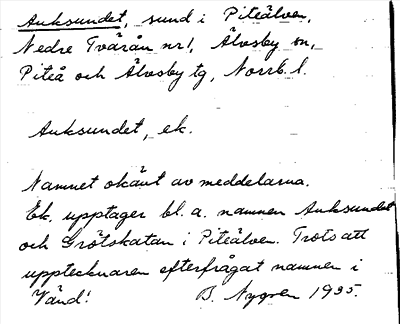 Auksundet, sund i Piteälven,
Nedre Tvärån nr 1, Älvsby sn,
Piteå och Älvsby tg, Norrb. l.
Auksundet, ek.
Namnet okänt av meddelarna.
Ek. upptager bl. a. namnen Auksundet
och Grötskatan i Piteälven. Trots att
upptecknaren efterfrågat namnen i
Vänd! B. Nygren 1935.